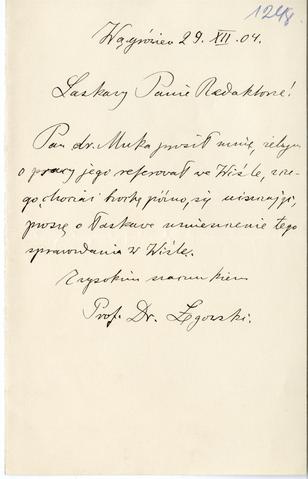 1248
Wągrówiec 29. XII. 04.
Łaskawy Panie Redaktorze!
Pan dr. Muka prosił mnię, żebym
o pracy jego referował w Wiśle, z cze-
go, chociaż trochę późno, się uiszczając,
proszę o łaskawe umieszczenie tego
sprawozdania w Wiśle.
Z wysokim szacunkiem
Prof. Dr. Łęgowski.